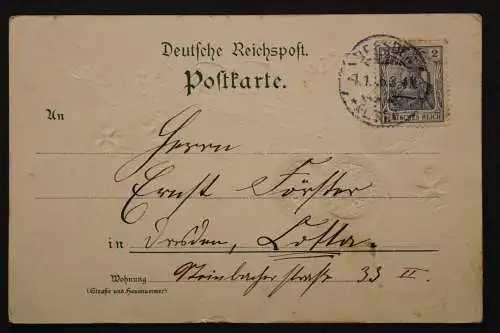 Deutsche Reichspost.
Postkarte.
2
DEUTSCHES REICH
An
Herrn
Ernst Förster
in Dresden, Cotta.
Wohnung Steinbacherstraße 33 II.
(Straße und Hausnummer)